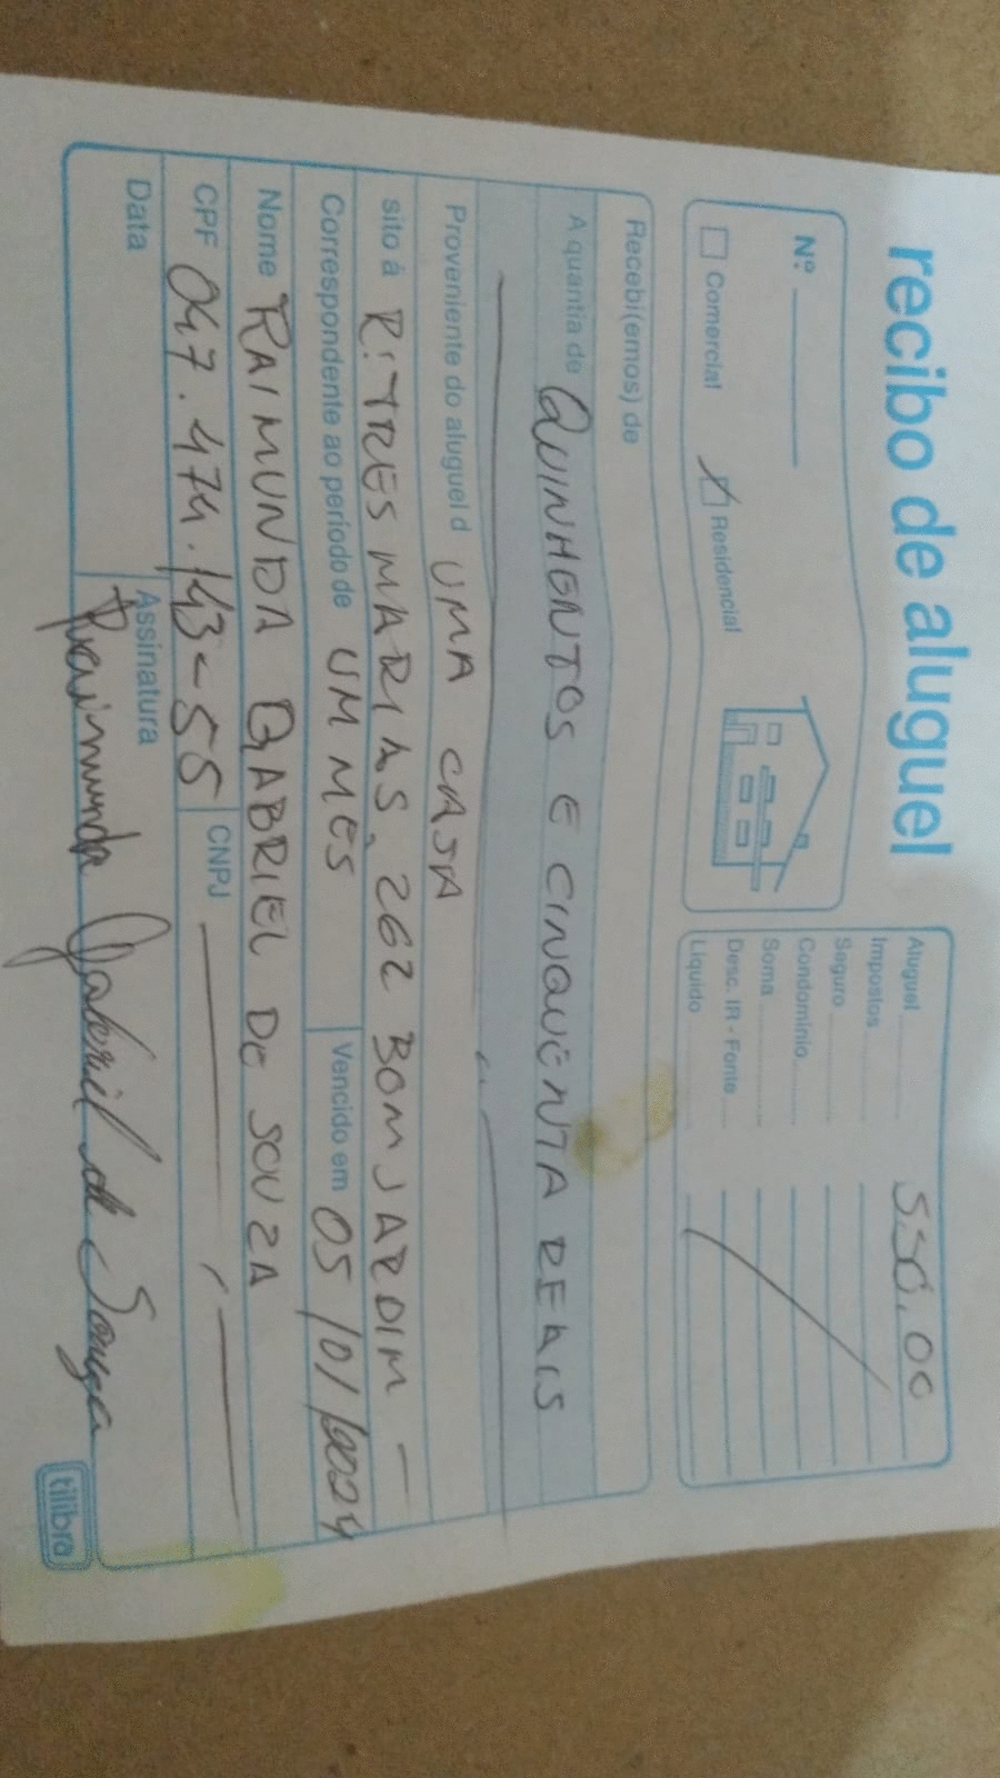 recibo de aluguel
Nº
Comercial Residencial
Aluguel 550,00
Impostos
Seguro
Condomínio
Soma
Desc. IR - Fonte
Líquido
Recebi(emos) de
A quantia de QUINHENTOS E CINQUENTA REAIS
Proveniente do aluguel d UMA CASA
sito à R: TRES MARIAS, 262 BOM JARDIM
Correspondente ao período de UM MÊS Vencido em 05/01/2024
Nome RAIMUNDA GABRIEL DE SOUZA
CPF 047.474.143-55 CNPJ
Data Assinatura Raimunda Gabriel de Souza
tilibra